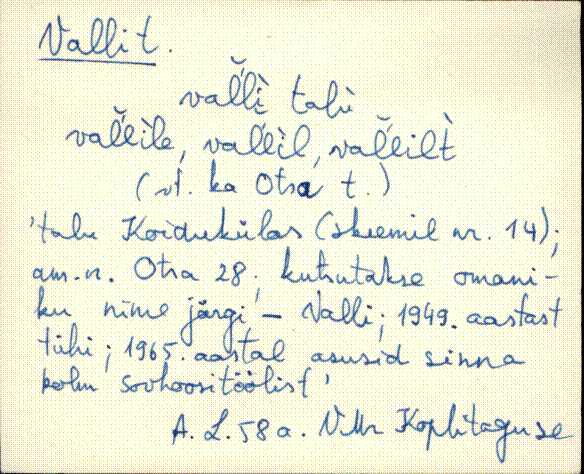 Valli t.
val̆l̀ì talù
val̆l̀ìle, val̆l̀ìl, val̆l̀ilt̀
(vt. ka Otsa t.)
'talu Koidukülas (skeemil nr. 14);
am.n. Otsa 28; kutsutakse omani-
ku nime järgi – Valli; 1949. aastast
tühi; 1965. aastal asusid sinna
kolm sovhoositöölist'
A. L. 58 a. VMr Koplitaguse